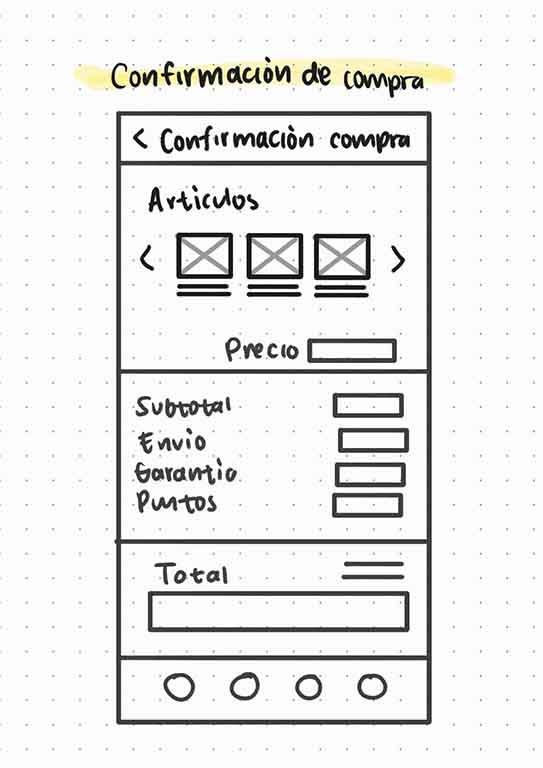 Confirmación de compra
< Confirmación compra
Articulos
Precio
Subtotal
Envio
Garantia
Puntos
Total